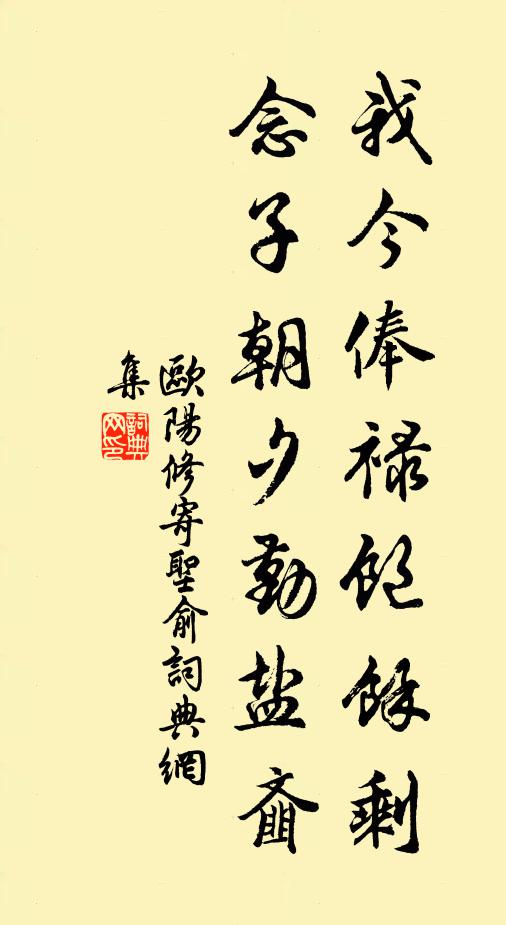 我今俸禄飽餘剩
念子朝夕勤盐齑
歐陽修寄聖俞詞典網
集
詞典網印